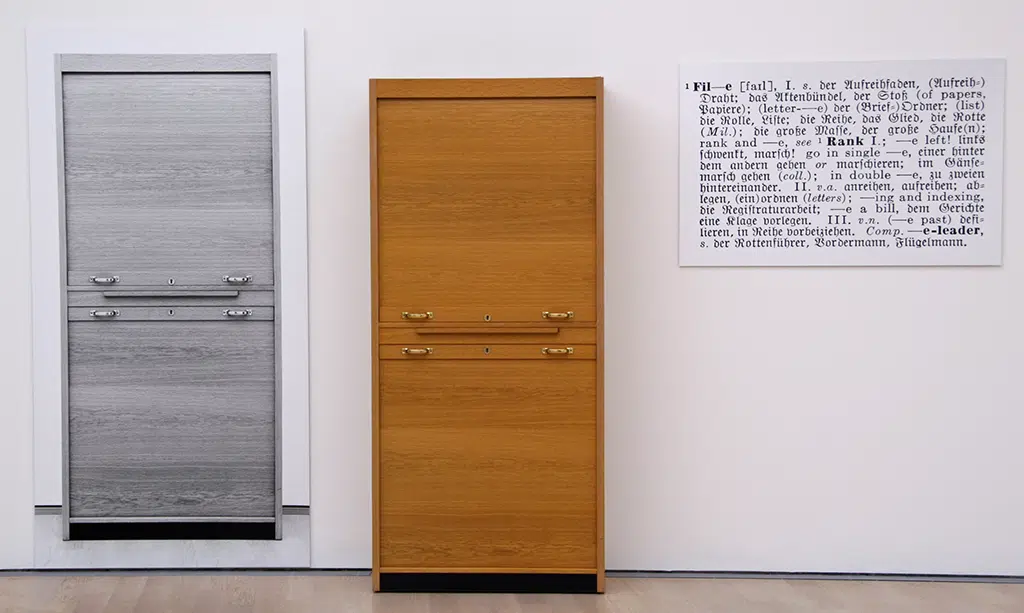 ¹ Fil—e [faɪl], I. s. der Aufreihfaden, (Aufreih=)
Draht; das Aktenbündel, der Stoß (of papers,
Papiere); (letter-—e) der (Brief=)Ordner; (list)
die Rolle, Liste; die Reihe, das Glied, die Rotte
(Mil.); die große Masse, der große Haufe(n);
rank and —e, see ¹ Rank I.; —e left! links
schwenkt, marsch! go in single —e, einer hinter
dem andern gehen or marschieren; im Gänse=
marsch gehen (coll.); in double —e, zu zweien
hintereinander. II. v.a. anreihen, aufreihen; ab=
legen, (ein)ordnen (letters); —ing and indexing,
die Registraturarbeit; —e a bill, dem Gerichte
eine Klage vorlegen. III. v.n. (—e past) defi=
lieren, in Reihe vorbeiziehen. Comp. —e-leader,
s. der Rottenführer, Vordermann, Flügelmann.